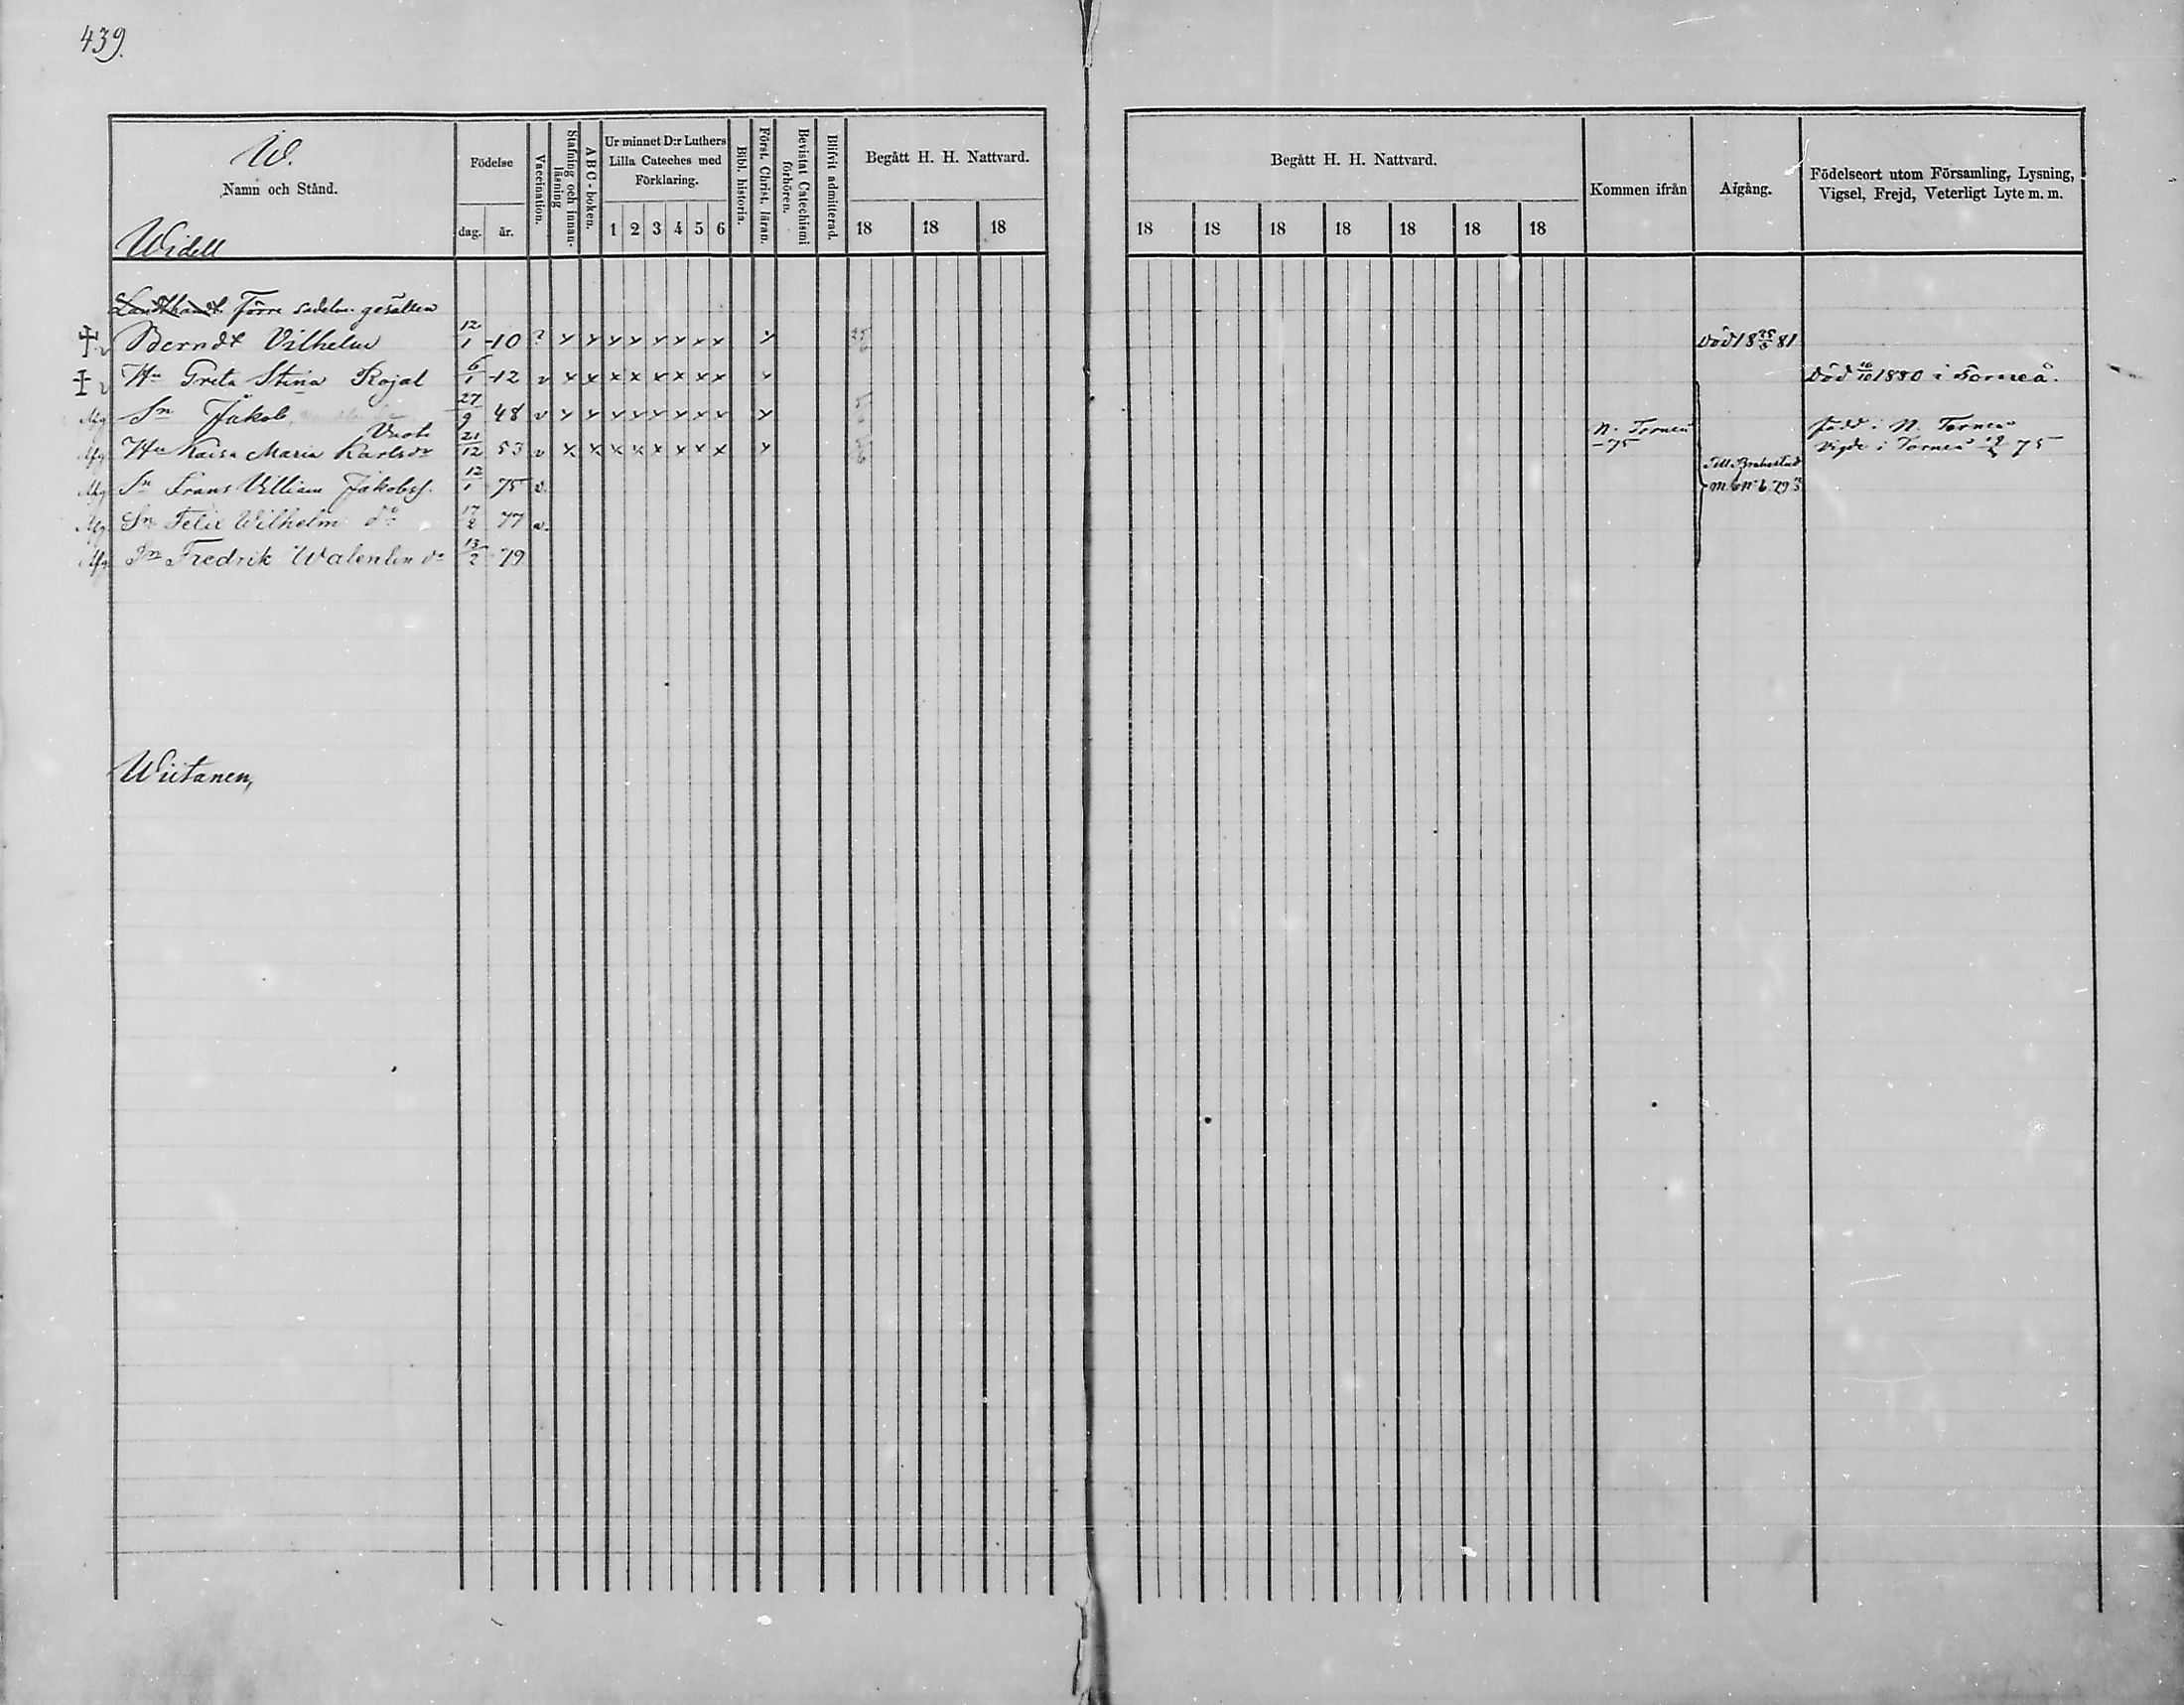 439.
W.
Namn och Stånd.
Födelse
dag. år.
Vaccination.
Stafning och innan-läsning
A B C-boken.
Ur minnet D:r Luthers Lilla Cateches med Förklaring.
1 2 3 4 5 6
Bibl. historia.
Först. Christ. läran.
Bevistat Catechismi förhören.
Blifvit admitterad.
Begått H. H. Nattvard.
18 18 18
Begått H. H. Nattvard.
18 18 18 18 18 18 18
Kommen ifrån
Afgång.
Födelseort utom Församling, Lysning, Vigsel, Frejd, Veterligt Lyte m. m.
Widell
Förre sadelm. gesällen
Berndt Vilhelm 12/1 -10 ? x x x x x x x x x Död 18 25/5 81
Hu Greta Stina Rojal 6/1 -12 v x x x x x x x x x Död 16/10 1880 i Torneå.
Afg Sn Jakob 27/9 48 v x x x x x x x x x
Afg Hu Kaisa Maria Karlsdr 21/12 53 v x x x x x x x x x N. Torneå -75 född i N. Torneå
Vigde i Torneå 75
Till Brahestad
Afg Sn Frans Villiam Jakobss. 12/1 75 v. m. b. N:o 6 79
Afg Sn Felix Wilhelm do 17/2 77 v.
Afg Sn Fredrik Walentin do 13/2 79
Wiitanen,